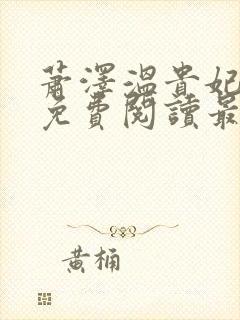 蕭澤溫貴妃
免費閱讀最
黃桶